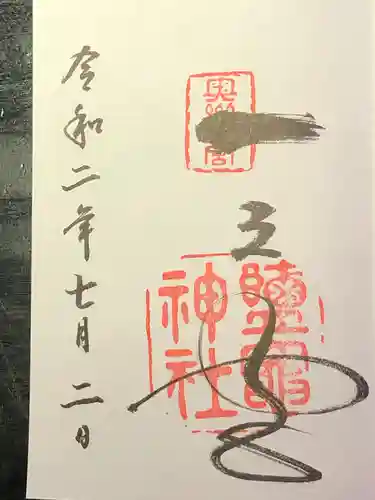 一之宮
鹽竈
神社
令和二年七月二日